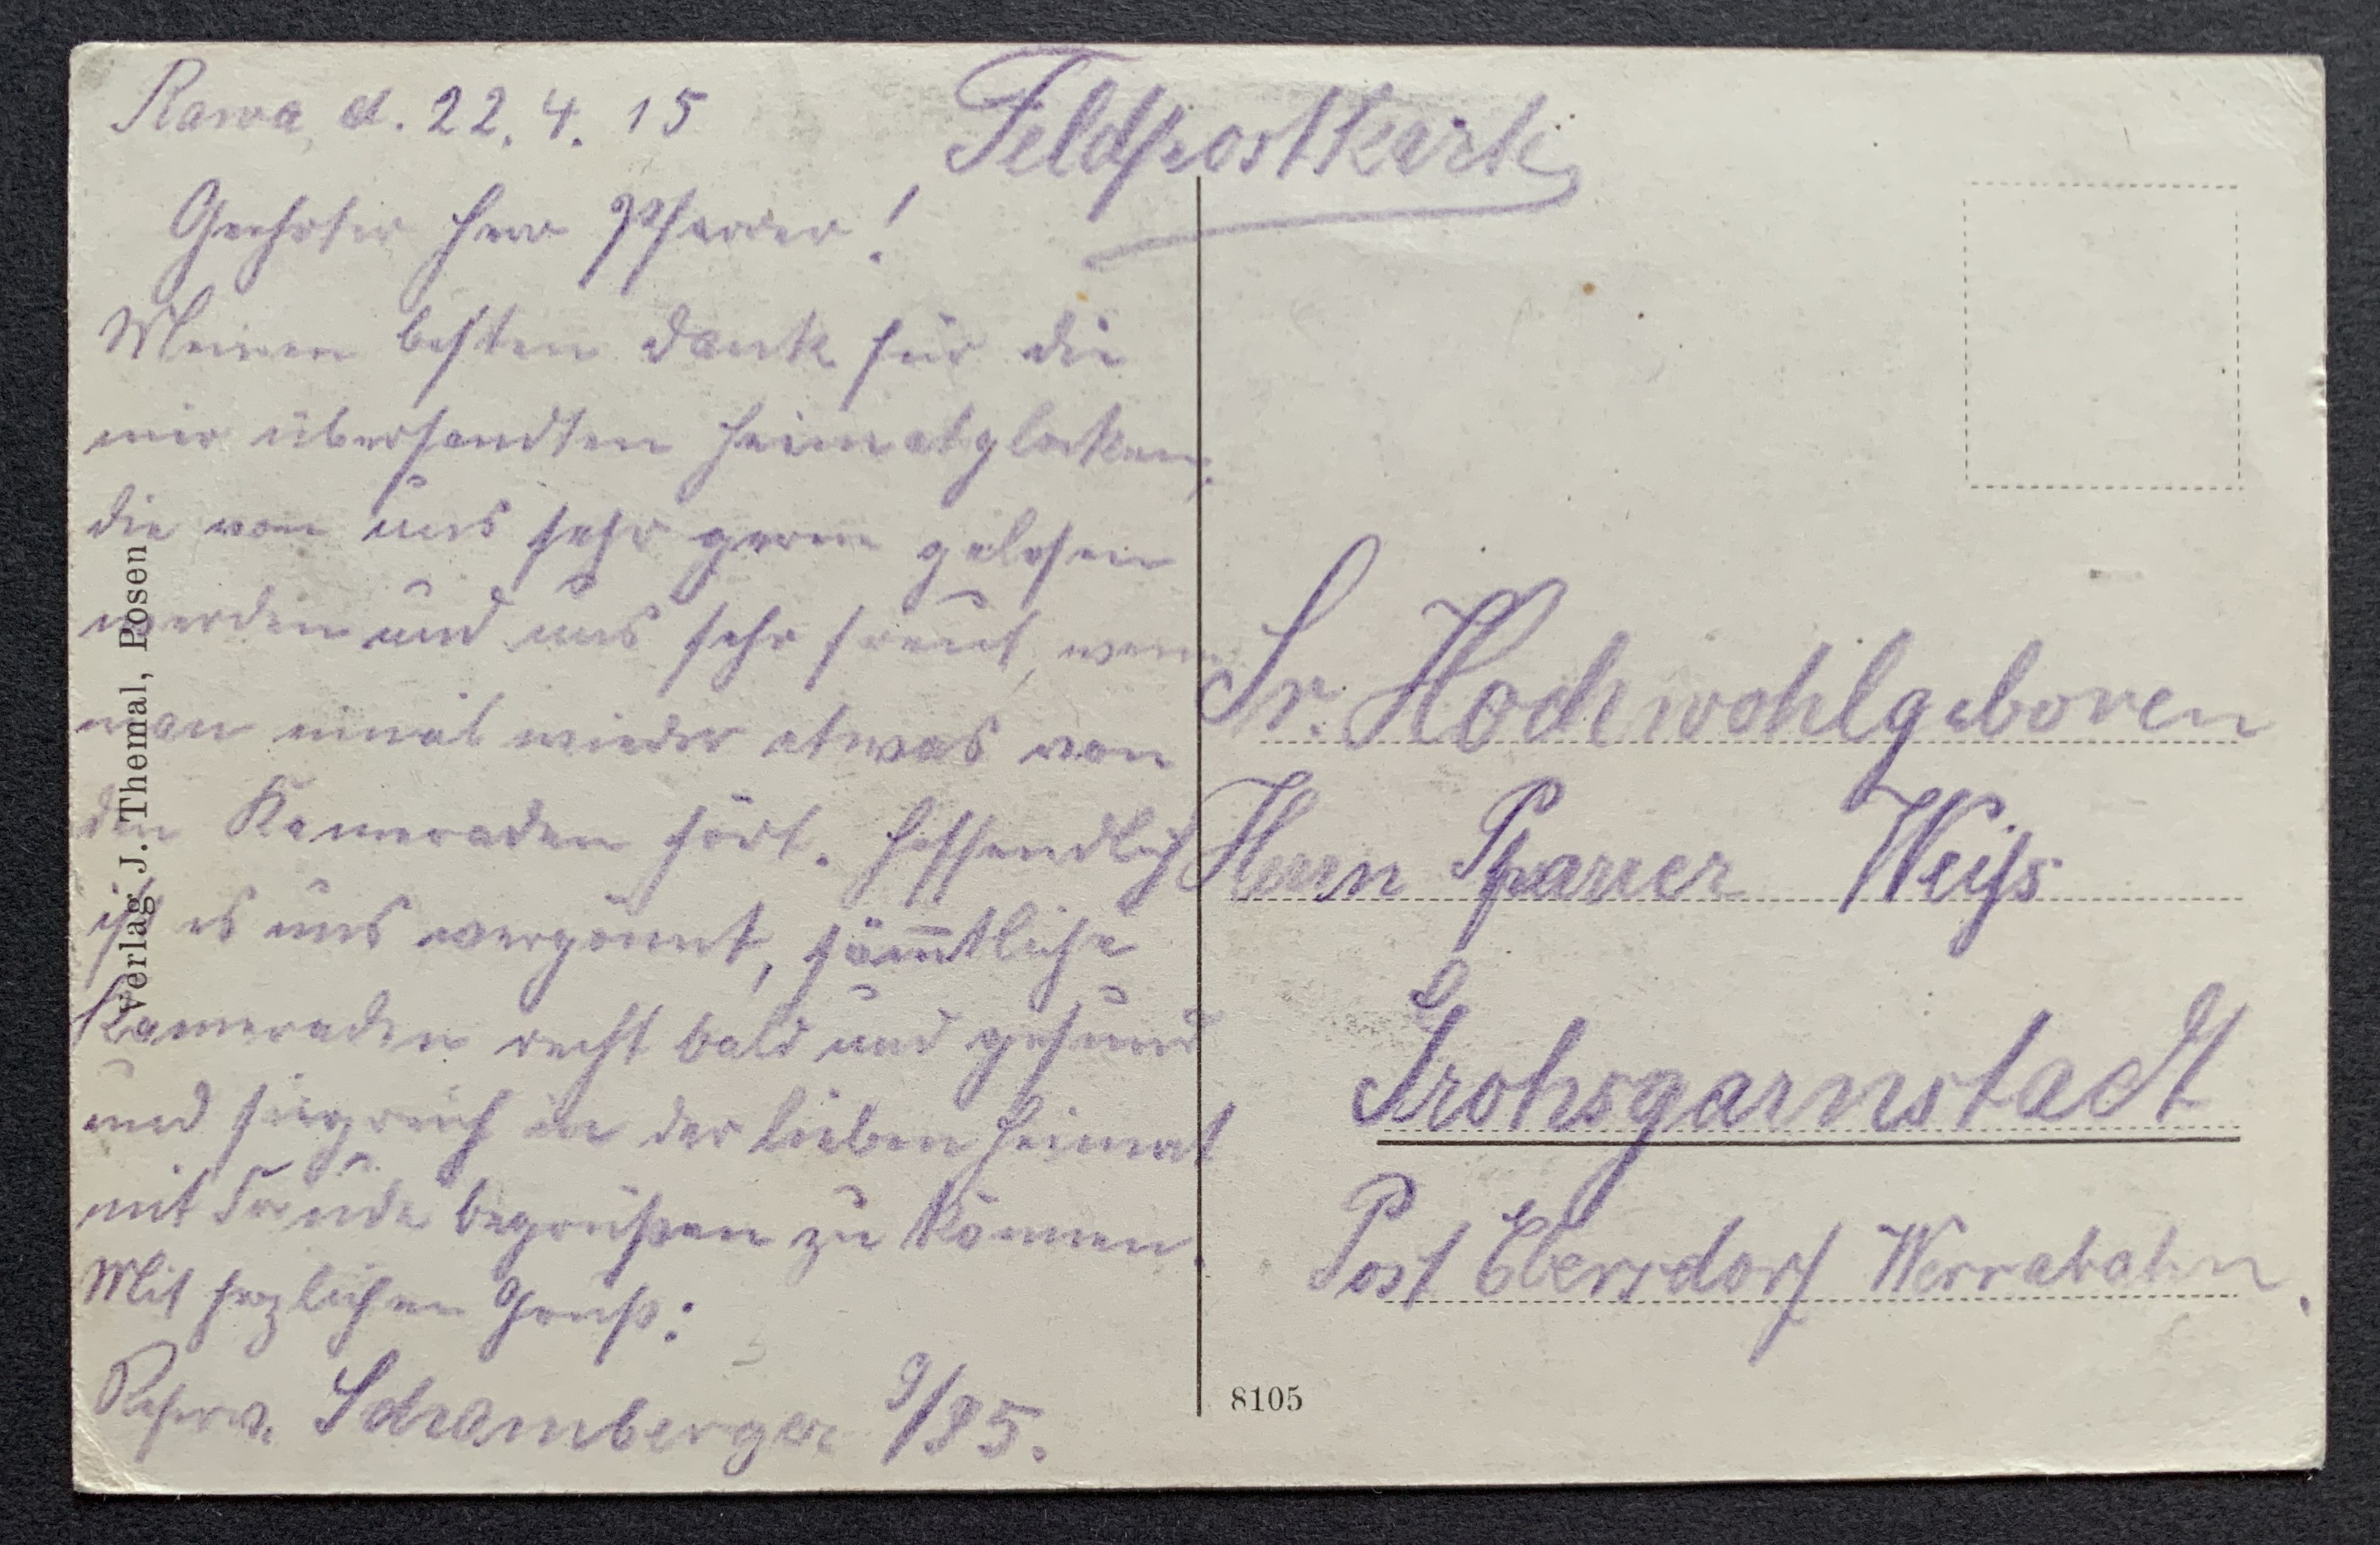 Feldpostkarte
Rawa, d. 22. 4. 15
Geehrter Herr Pfarrer!
Meinen besten Dank für die
mir übersandten Heimatglocken,
die von uns sehr gerne gelesen
werden und uns sehr freut, wenn
man einmal wieder etwas von
den Kameraden hört. Hoffendlich
ist es uns vergönnt, säm̅tliche
Kameraden recht bald und gesund
und siegreich in der lieben Heimat
mit Freude begrüßen zu können.
Mit herzlichen Gruß:
Reserv. Schamberger 9/85.
Sr. Hochwohlgeboren
Herrn Pfarrer Weiss
Grohsgarnstadt
Post Ebersdorf Werrabahn.
Verlag J. Themal, Posen
8105